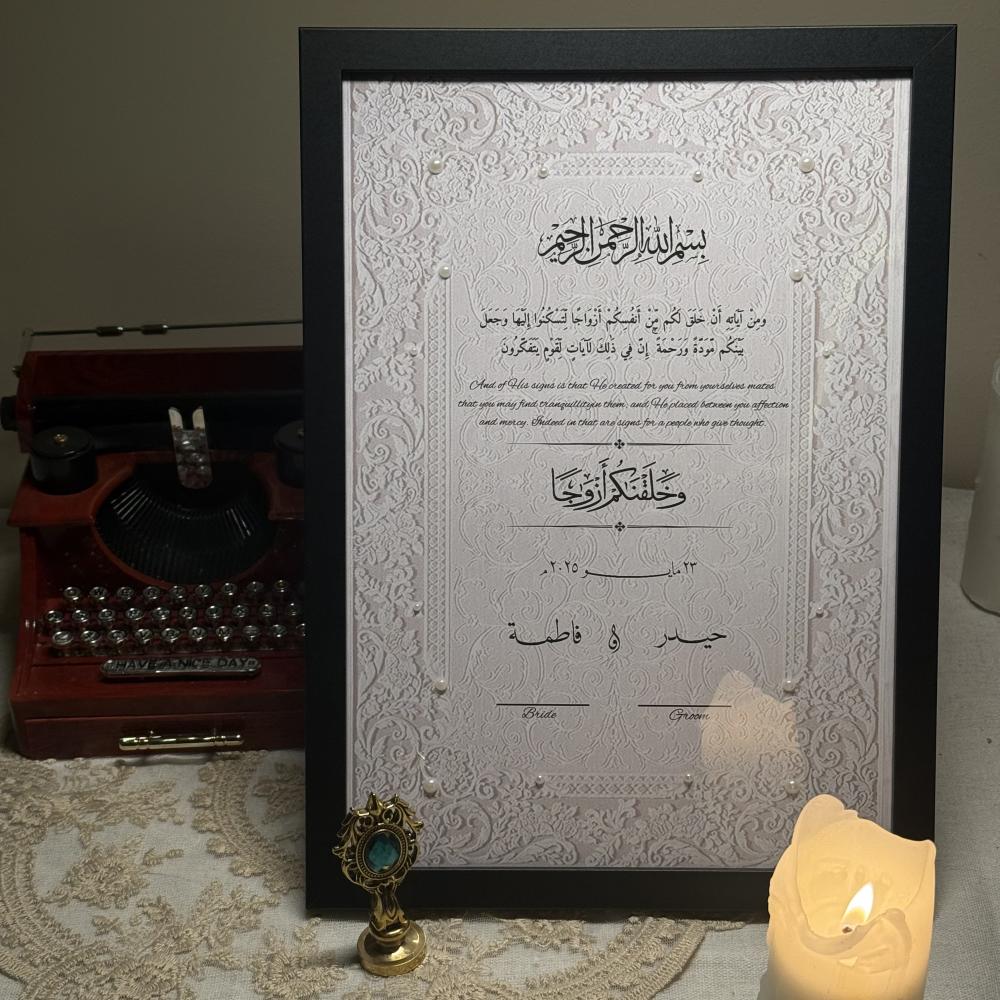 بسم الله الرحمن الرحيم
ومِنْ آيَاتِهِ أَنْ خَلَقَ لَكُم مِّنْ أَنفُسِكُمْ أَزْوَاجًا لِّتَسْكُنُوا إِلَيْهَا وَجَعَلَ
بَيْنَكُم مَّوَدَّةً وَرَحْمَةً إِنَّ فِي ذَٰلِكَ لَآيَاتٍ لِّقَوْمٍ يَتَفَكَّرُونَ
And of His signs is that He created for you from yourselves mates
that you may find tranquillityin them; and He placed between you affection
and mercy. Indeed in that are signs for a people who give thought.
وَخَلَقْنَكُمْ أَزْوَجًا
٢٣ مايـــو ٢٠٢٥م
حيـدر و فاطمـة
Bride Groom
HAVE A NICE DAY